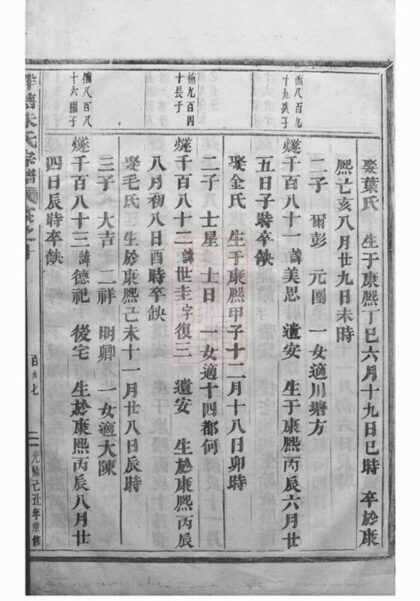 娶葉氏 生于康熙丁巳六月十九日巳時 卒於康
熙己亥八月廿九日未時
二子 爾彭 元團 一女適川塘方
燧千百八十一諱美思 遺安 生于康熙丙辰六月廿
五日子時卒缺
娶金氏 生于康熙甲子十二月十八日卯時
二子 士星 士日 一女適十四都何
燧千百八十二諱世圭字復三 遺安 生於康熙丙辰
八月初八日酉時卒缺
娶毛氏 生於康熙己未十一月廿八日辰時
三子 大吉 二祥 明卿 一女適大陳
燧千百八十三諱德祀 後宅 生於康熙丙辰八月廿
四日辰時卒缺
朱氏宗譜
百九七
光緒己丑年重修